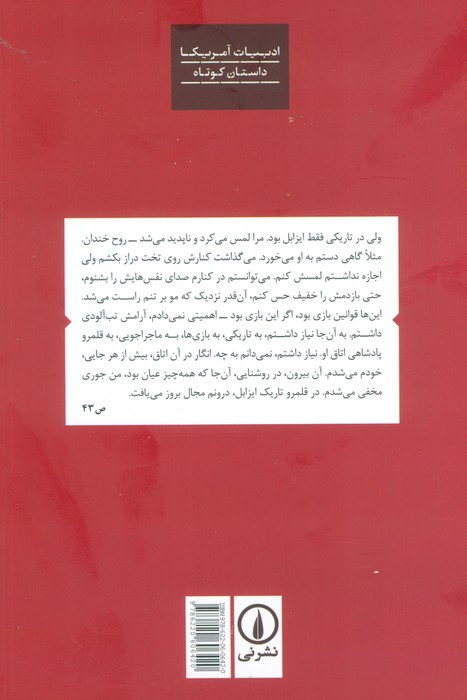 ادبیات آمریکا
داستان کوتاه
ولی در تاریکی فقط ایزابل بود. مرا لمس می‌کرد و ناپدید می‌شد ــ روح خندان.
مثلاً گاهی دستم به او می‌خورد. می‌گذاشت کنارش روی تخت دراز بکشم ولی
اجازه نداشتم لمسش کنم. می‌توانستم در کنارم صدای نفس‌هایش را بشنوم،
حتی بازدمش را خفیف حس کنم، آن‌قدر نزدیک که مو بر تنم راست می‌شد.
این‌ها قوانین بازی بود، اگر این بازی بود ــ اهمیتی نمی‌دادم، آرامش تب‌آلودی
داشتم. به آن‌جا نیاز داشتم، به تاریکی، به بازی‌ها، به ماجراجویی، به قلمرو
پادشاهی اتاق او. نیاز داشتم، نمی‌دانم به چه. انگار در آن اتاق، بیش از هر جایی،
خودم می‌شدم. آن بیرون، در روشنایی، آن‌جا که همه‌چیز عیان بود، من جوری
مخفی می‌شدم. در قلمرو تاریک ایزابل، درونم مجال بروز می‌یافت.
ص ۴۳
ISBN 978-622-06-0642-0
9786220606420
نشرنی